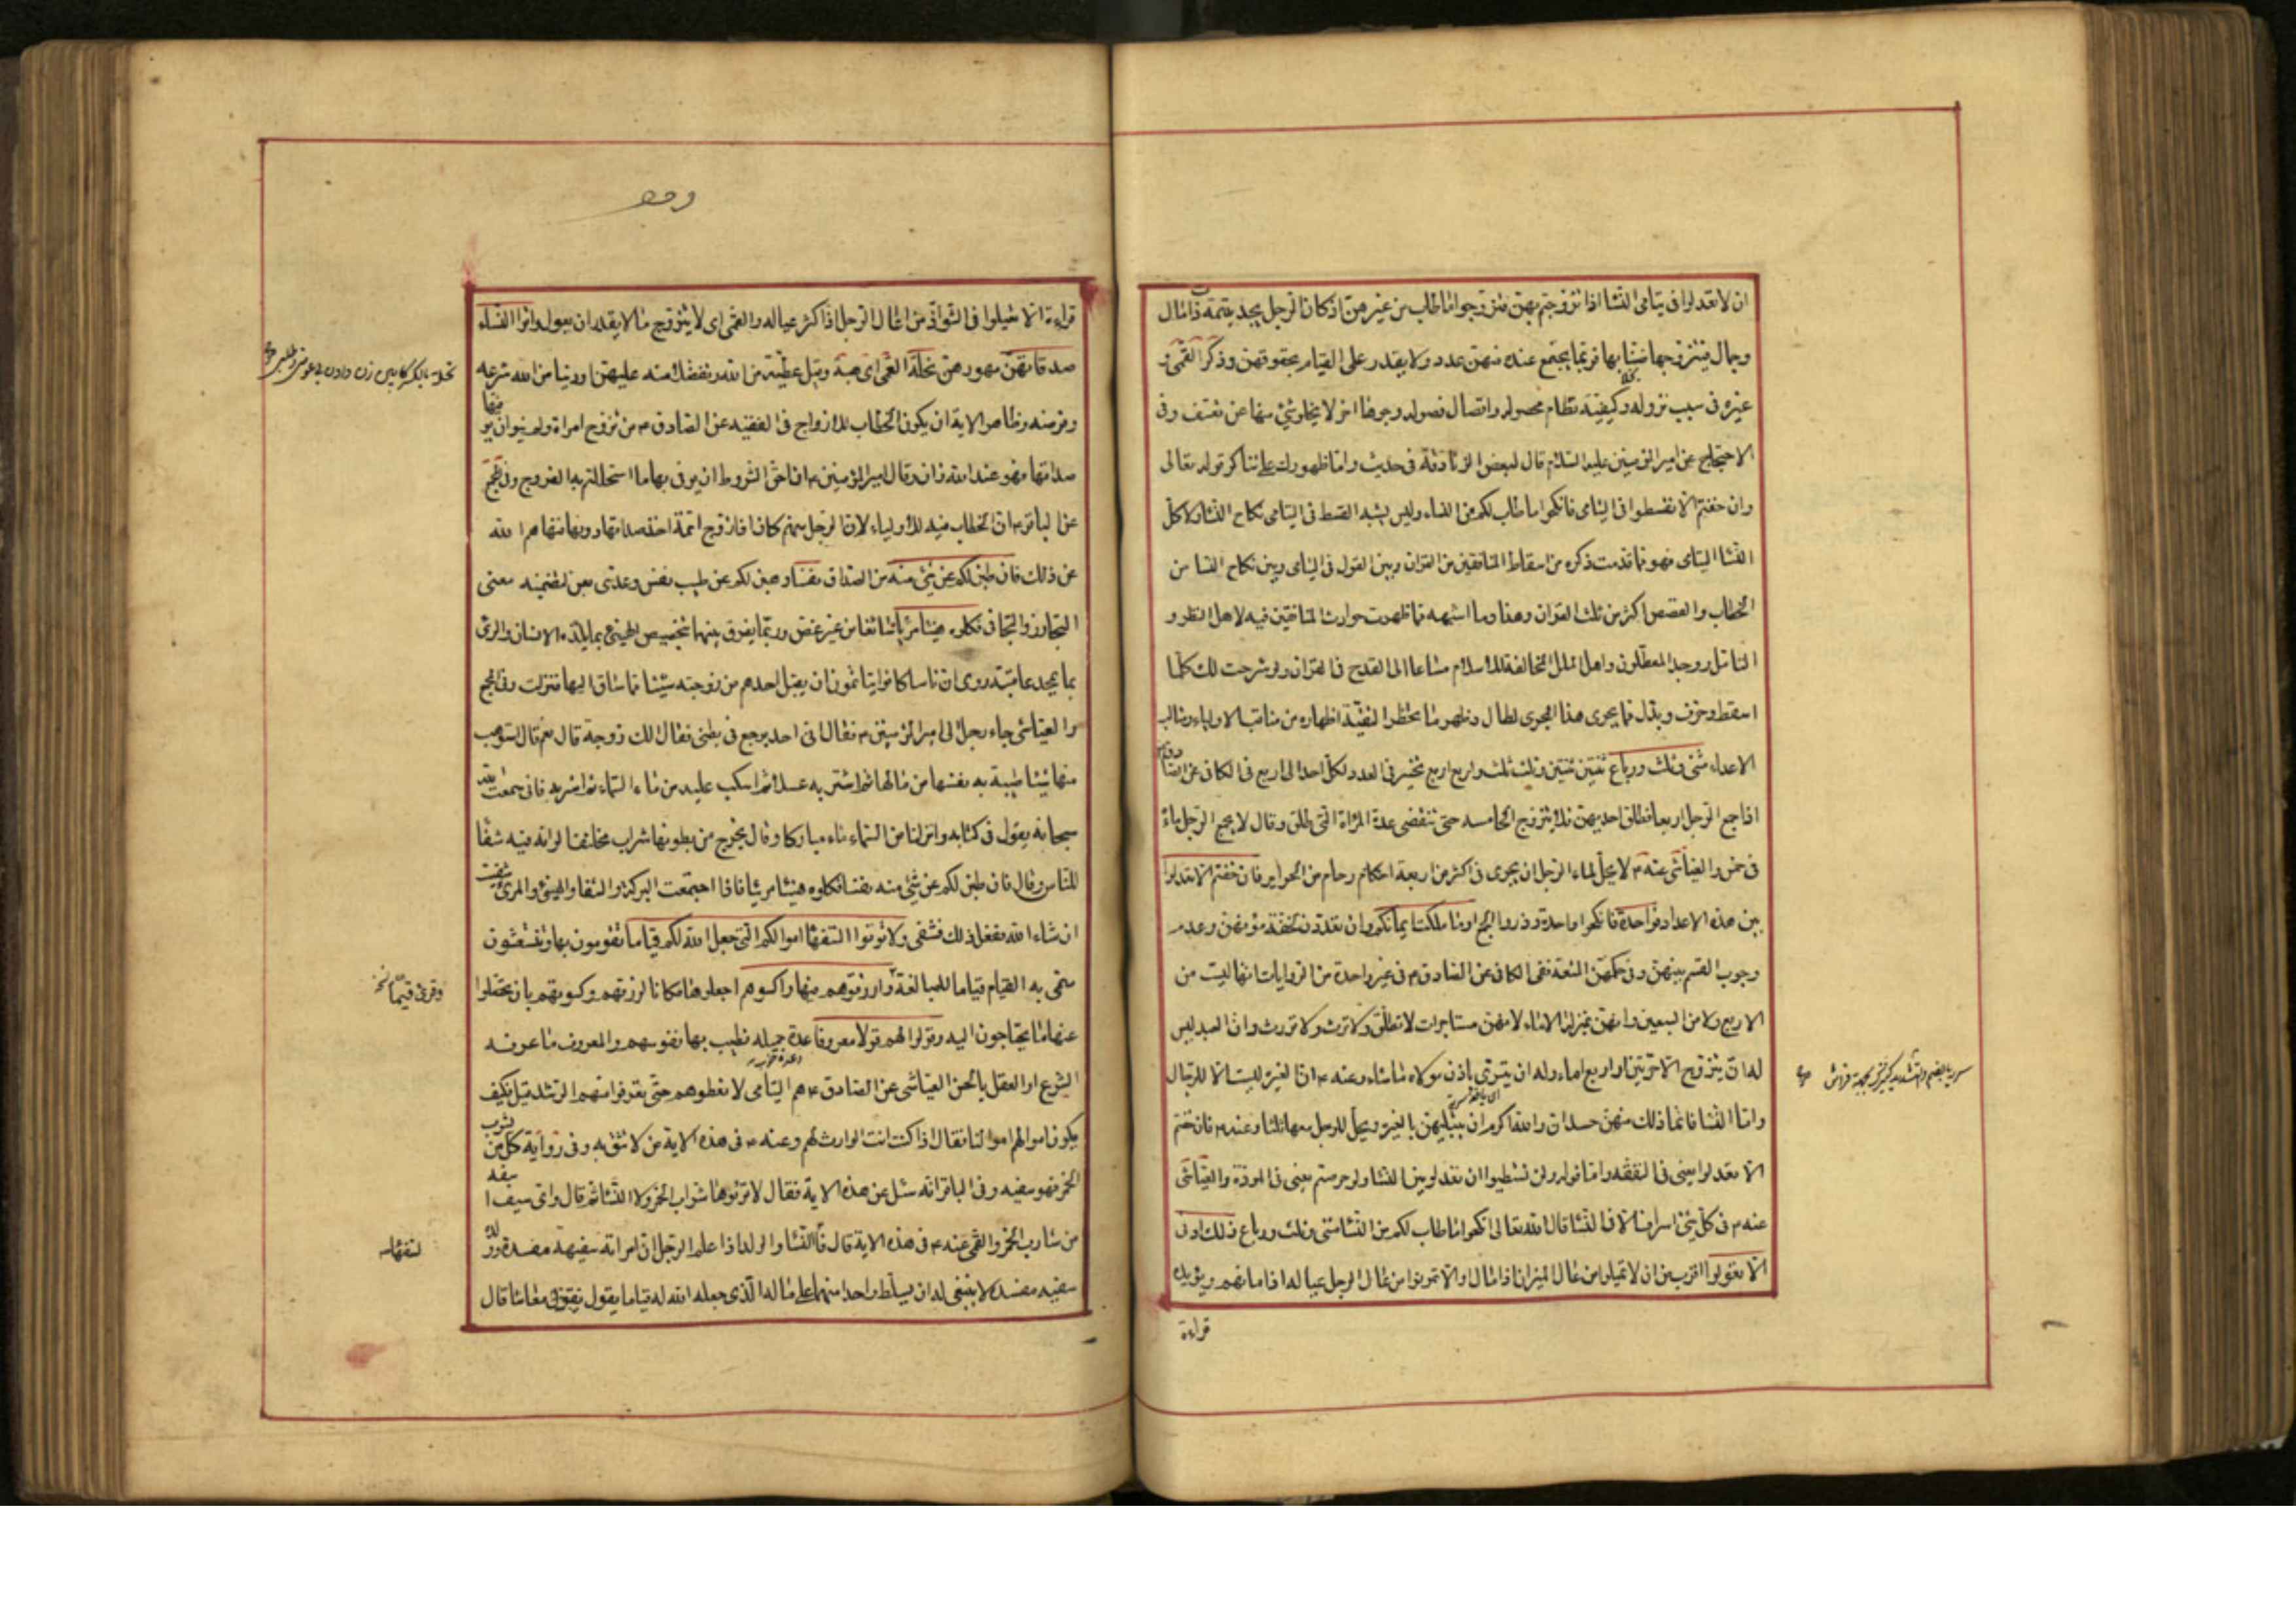 ان لا تعدلوا فى يتامى النسا اذا تزوجتم بهن فتزوجوا ما طاب من غيرهن اذ كان الرجل يجد يتيمة ذا مال
وجال فيتزوجها ضنا بها فربما يجتمع عنده منهن عدد ولا يقدر على القيام بحقوقهن وذكر القمى و
غيره فى سبب نزوله وكيفية نظام محصوله واتصال فصوله وجوها اخر لا يخلو شئ منها عن تعسف وفى
الاحتجاج عن امير المؤمنين عليه السلام قال لبعض الزنادقة فى حديث واما ظهورك على تناكر قوله تعالى
وان خفتم الا تقسطوا فى اليتامى فانكحوا ما طاب لكم من النساء وليس يشبه القسط فى اليتامى نكاح النساء ولا كل
النسا اليتامى فهو مما قدمت ذكره من اسقاط المنافقين من القران وبين القول فى اليتامى وبين نكاح النسا من
الخطاب والقصص اكثر من ثلث القران وهذا وما اشبهه مما ظهرت حوادث المنافقين فيه لاهل النظر و
التامل ووجد المعطلون واهل الملل المخالفة للاسلام مساغا الى القدح فى القران ولو شرحت لك كلما
اسقط وحرف وبدل مما يجرى هذا المجرى لطال وظهر ما يحظر التقية اظهاره من مناقب الاولياء ومثالب
الاعداء مثنى وثلث ورباع ثنتين ثنتين وثلث ثلث واربع اربع تخيير فى العدد لكل احد الى اربع فى الكافى عن الصادق
اذا جمع الرجل اربعا فطلق احديهن فلا يتزوج الخامسه حتى تنقضى عدة المراة التى طلق وقال لا يجمع الرجل ماءه
فى خمس والعياشى عنه ع لا يحل لماء الرجل ان يجرى فى اكثر من اربعة ارحام من الحراير فان خفتم الا تعدلوا
بين هذه الاعداد فواحدة فانكحوا واحدة وذروا الجمع او ما ملكت ايمانكم وان تعددن لخفة مؤنهن وعدم
وجوب القسم بينهن وفى حكمهن المتعة ففى الكافى عن الصادق ع فى غير واحدة من الروايات انها ليست من
الاربع ولا من السبعين وانهن بمنزلة الاماء لانهن مستاجرات لا تطلق ولا ترث ولا تورث وان العبد ليس
له ان يتزوج الا حرتين او اربع اماء وله ان يتسرى باذن مولاه ما شاء وعنه ع ان الغيرة ليست الا للرجال
واما النسا فانما ذلك منهن حسد ان والله اكرم ان يبتليهن بالغيرة ويحل للرجل معها ثلثا وعنه ع فان خفتم
الا تعدلوا يعنى فى النفقه واما قوله ولن تستطيعوا ان تعدلوا بين النسا ولو حرصتم يعنى فى المودة والعياشى
عنه ع فى كل شئ اسراف الا فى النسا قال الله تعالى انكحوا ما طاب لكم من النسا مثنى وثلث ورباع ذلك ادنى
الا تعولوا اقرب من ان لا تميلوا من عال الميزان اذا مال او الا تمونوا من عال الرجل عياله اذا مانهم ويؤيده
قراءة
قراءة الا تعيلوا فى الشواذ من اعال الرجل اذا كثر عياله والقمى اى لا يتزوج ما لا يقدر ان يعول واتوا النساء
صدقاتهن مهورهن نحلة القمى اى هبة وقيل عطية من الله وتفضلا منه عليهن او دينا من الله شرعه
وفرضه وظاهر الاية ان يكون الخطاب للازواج فى الفقيه عن الصادق ع من تزوج امراة ولم ينو ان يوفيها
صداقها فهو عند الله زان وقال امير المؤمنين ع ان احق الشروط ان يوفى بها ما استحللتم به الفروج وفى المجمع
عن الباقر ع ان الخطاب فيه للاولياء لان الرجل منهم كان اذا زوج ايمة اخذ صداقها دونها فنهاهم الله
عن ذلك فان طبن لكم عن شئ منه من الصداق نفسا وهبن لكم عن طيب نفس وعدى بعن لتضمنه معنى
التجاوز والتجافى فكلوه هنيئا مريئا سائغا من غير غصص وربما يفرق بينهما بتخصيص الهنيئ بما يلذه الانسان والمرئ
بما يحمد عاقبته روى ان ناسا كانوا يتاثمون ان يقبل احدهم من زوجته شيئا مما ساق اليها فنزلت وفى المجمع
والعياشى جاء رجل الى امير المؤمنين ع فقال انى احد يوجع فى بطنى فقال الك زوجة قال نعم قال استوهب
منها شيئا طيبة به نفسها من مالها ثم اشتر به عسلا ثم اسكب عليه من ماء السماء ثم اشربه فانى سمعت الله
سبحانه يقول فى كتابه وانزلنا من السماء ماء مباركا وقال يخرج من بطونها شراب مختلف الوانه فيه شفا
للناس وقال فان طبن لكم عن شئ منه نفسا فكلوه هنيئا مريئا فاذا اجتمعت البركة والشفا والهنيئ والمرئ شفيت
ان شاء الله ففعل ذلك فشفى ولا تؤتوا السفهاء اموالكم التى جعل الله لكم قياما تقومون بها وتنتعشون
سمى به القيام قياما للمبالغة وارزقوهم فيها واكسوهم اجعلوها مكانا لرزقهم وكسوتهم بان تحصلوا
عنها ما يحتاجون اليه وقولوا لهم قولا معروفا عدة جميله تطيب بها نفوسهم والمعروف ما عرفه
الشرع او العقل بالحسن العياشى عن الصادق ع هم اليتامى لا تعطوهم حتى تعرفوا منهم الرشد قيل فكيف
يكون اموالهم اموالنا فقال اذا كنت انت الوارث لهم وعنه ع فى هذه الاية من لا تثق به وفى رواية كل من يشرب
الخمر فهو سفيه وفى الباقر انه سئل عن هذه الاية فقال لا تؤتوها شراب الخمر ولا النسا ثم قال واى سفيه اسفه
من شارب الخمر والقمى عنه ع فى هذه الاية قال فالنسا والولد اذا علم الرجل ان امراته سفيهة مفسدة وولده
سفيه مفسد لا ينبغى له ان يسلط واحدا منهما على ماله الذى جعله الله له قياما يقول معاشا قال
وقرئ قيما